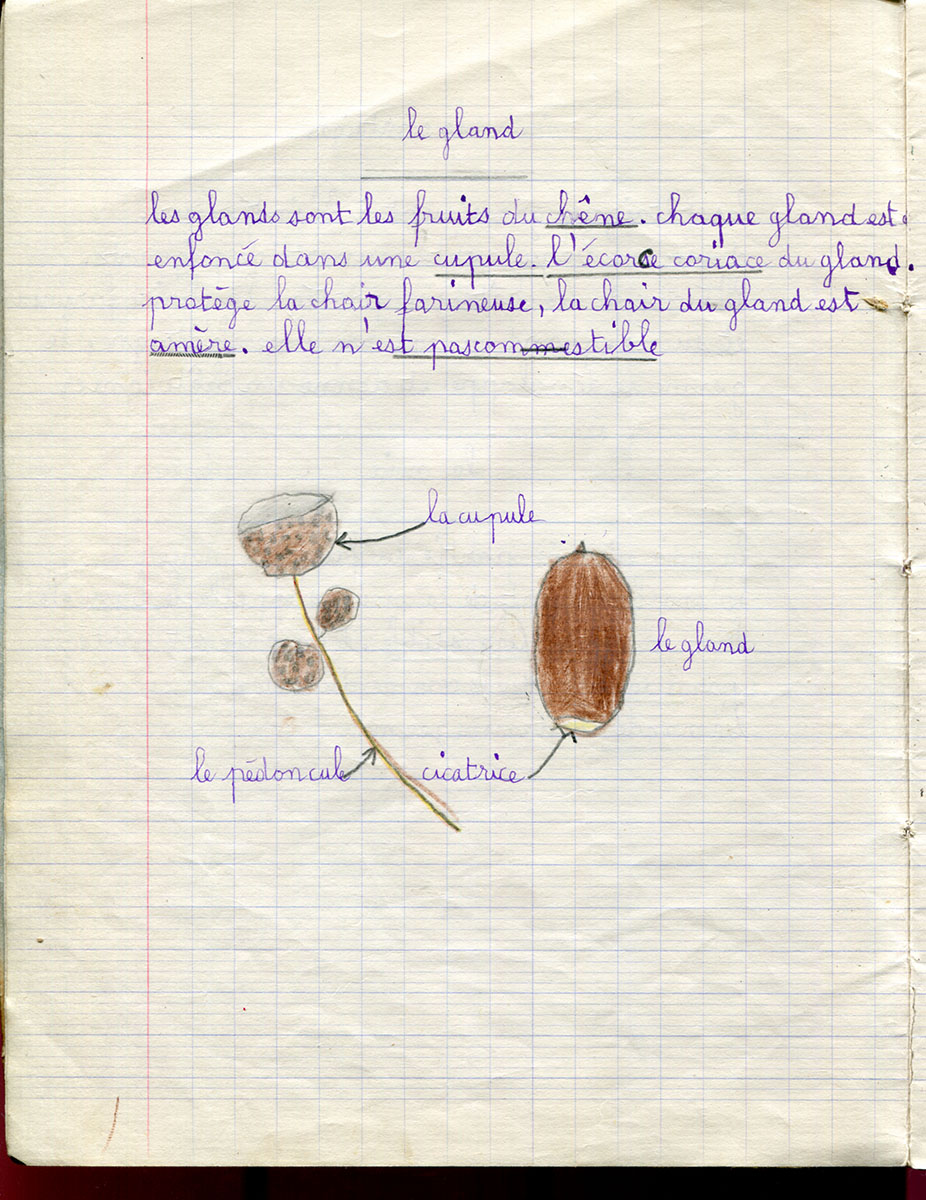 le gland
les glands sont les fruits du chêne. chaque gland est
enfoncé dans une cupule. l'écorce coriace du gland.
protège la chair farineuse, la chair du gland est
amère. elle n'est pas commestible
la cupule
le gland
le pédoncule
cicatrice